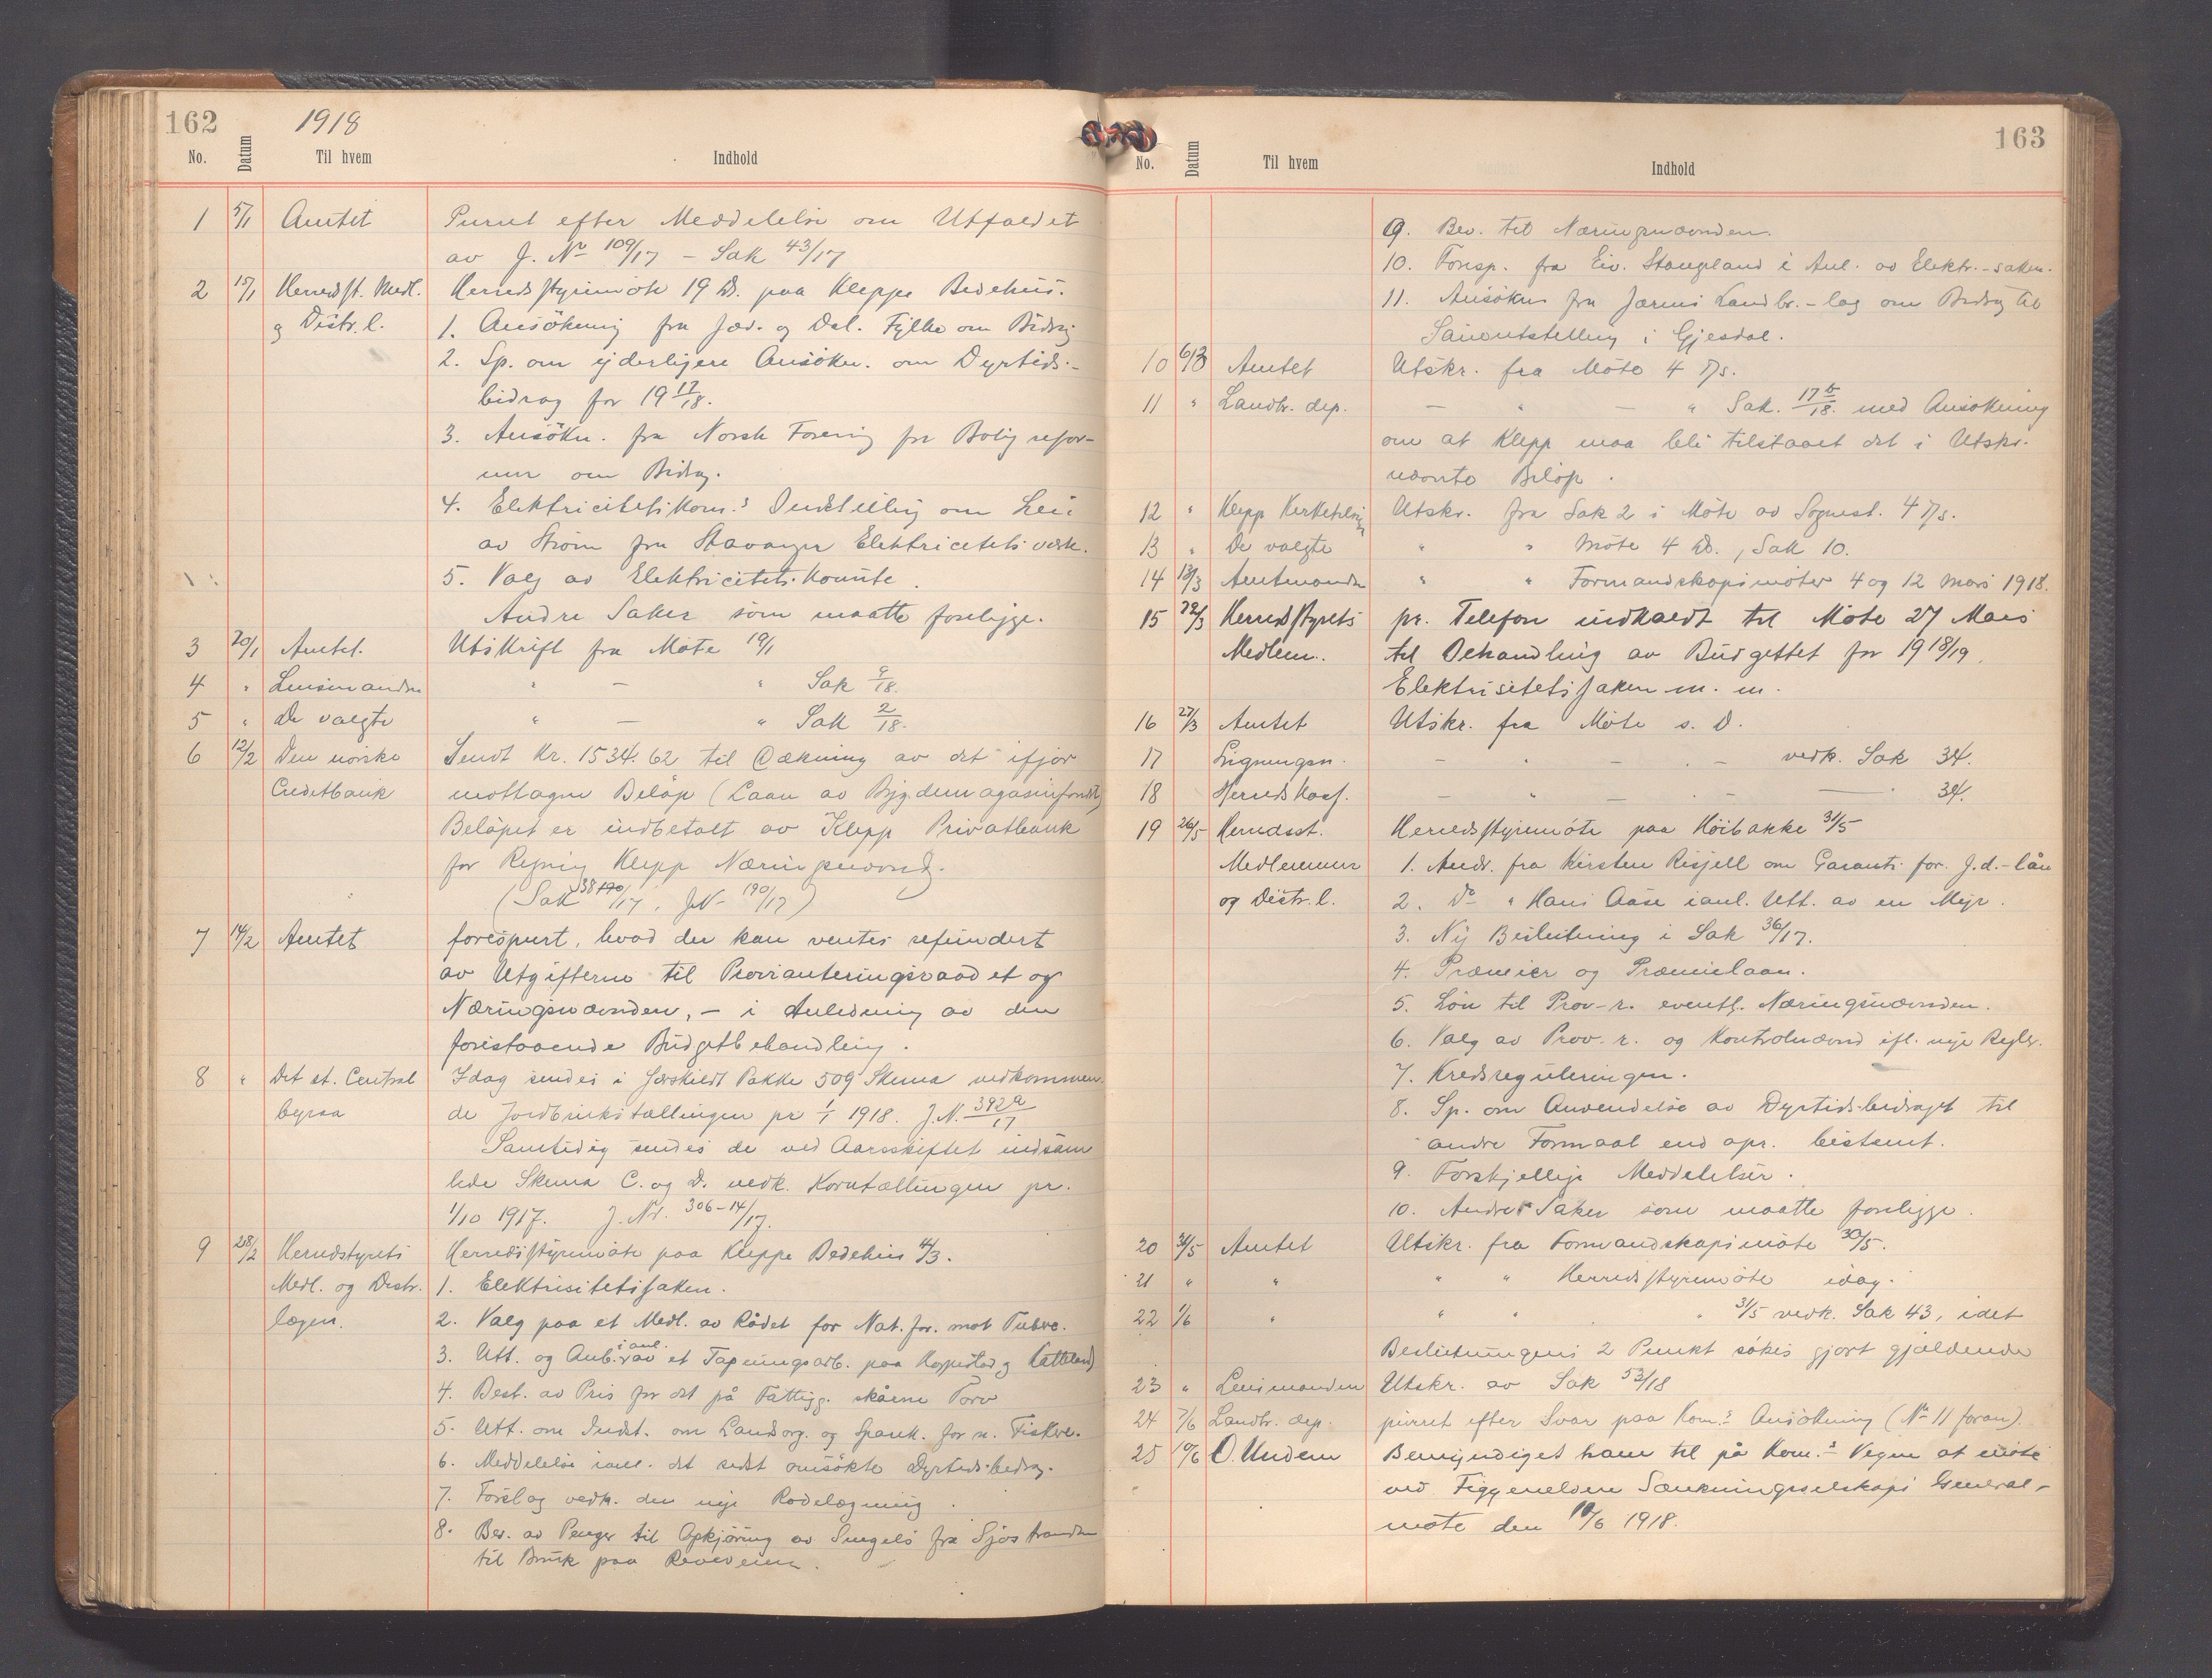 162
1918
No. Datum Til hvem Indhold
1 5/1 Amtet Purret efter Meddelelse om Utfaldet
av J. No 109/17 – Sak 43/17
2 15/1 Herredsst. Medl. Herredsstyremöte 19 ds. paa Kleppe Bedehus.
og Distr.l. 1. Ansökning fra Jæd. og Dal. Fylke om Bidrag
2. Sp. om yderligere Ansökn. om Dyrtids-
bidrag for 19 17/18.
3. Ansökn. fra Norsk Forening for Bolig refor-
mer om Bidrag.
4. Elektricitetskom.s Indstilling om Leie
av Ström fra Stavanger Elektricitetsverk.
5. Valg av Elektricitets-Komite.
Andre Saker som maatte foreligge.
3 20/1 Amtet. Utskrift fra Möte 19/1
4 " Lensmanden " – " Sak 9/18.
5 " De valgte " – " Sak 2/18.
6 12/2 Den norske Sendt Kr. 1534.62 til Dækning av det ifjor
Creditbank mottagne Belöp (Laan av Bygdemagasinfondet)
Belöpet er indbetalt av Klepp Privatbank
for Regning Klepp Næringsnævnd.
(Sak 38/17, JN- 190/17)
7 14/2 Amtet forespurt, hvad der kan ventes refundert
av Utgifterne til Provianteringsraadet og
Næringsnævnden, – i Anledning av den
forestaaende Budgetbehandling.
8 " Det st. Central Idag sendes i særskildt Pakke 509 Skema vedkommen-
byraa de Jordbrukstællingen pr 1/1 1918. J.N. 392a/17
Samtidig sendes de ved Aarsskiftet indsam
lede Skema C. og D. vedk. Korntællingen pr.
1/10 1917. J.Nr. 306-14/17.
9 28/2 Herredstyrets Herredsstyremöte paa Kleppe Bedehus 4/3.
Medl. og Distr. 1. Elektrisitetssaken.
lægen. 2. Valg paa et Medl. av Rådet for Nat.for. mot Tuberc.
3. Utt. og Anb. i anl. av et Tapningsarb. paa og
4. Best. av Pris for det på Fattigg. skårne Torv
5. Utt. om Indst. om Landsorg. og Spark. for n. Fiskere.
6. Meddelelse i anl. det sidst ansökte Dyrtids-bidrag.
7. Forslag vedk. den nye Rodelægning.
8. Bev. av Penger til Opkjöring av Singels fra Sjöstranden
til Bruk paa Reveveien.
163
No. Datum Til hvem Indhold
9. Bev. til Næringsnævnden.
10. Foresp. fra Eiv. Stangeland i Anl. av Elektr.-saken.
11. Ansökn fra Jærens Landbr.-lag om Bidrag til
Saueutstilling i Gjesdal.
10 6/3 Amtet Utskr. fra Möte 4 ds.
11 " Landbr. dep. – " – " Sak. 17b/18. med Ansökning
om at Klepp maa bli tilstaaet det i Utskr.
nævnte Belöp.
12 " Klepp Kirketilsyn Utskr. fra Sak 2 i Möte av Sognest. 4 ds.
13 " De valgte " " Möte 4 ds., Sak 10.
14 13/3 Amtmanden " " Formandskapsmöter 4 og 12 Mars 1918.
15 22/3 Herredsstyrets pr. Telefon indkaldt til Möte 27 Mars
Medlem. til Behandling av Budgettet for 1918/19,
Elektrisitetssaken m. m.
16 27/3 Amtet Utskr. fra Möte s. D.
17 Ligningsn. – " – " – vedk. Sak 34.
18 Herredskass. – " – " – 34.
19 26/5 Herredsst. Herredsstyremöte paa Höibakke 31/5
Medlemmer 1. Andr. fra Kirsten Risjell om Garanti for J.d.-lån
og Distr.l. 2. Do " Hans Aase i anl. Utt. av en Myr.
3. Ny Beslutning i Sak 36/17.
4. Præmier og Præmielaan.
5. Lön til Prov-r. eventl. Næringsnævnden.
6. Valg av Prov.-r. og Kontrolnævnd ifl. nye Regler.
7. Kredsreguleringen.
8. Sp. om Anvendelse av Dyrtids-bidraget til
andre Formaal end opr. bestemt.
9. Forskjellige Meddelelser.
10. Andre Saker som maatte foreligge.
20 31/5 Amtet Utskr. fra Formandskapsmöte 30/5.
21 " " " " Herredsstyremöte idag.
22 1/6 " " " " 31/5 vedk. Sak 43, idet
Beslutningens 2 Punkt sökes gjort gjældende
23 " Lensmanden Utskr. av Sak 53/18
24 7/6 Landbr. dep. purret efter Svar paa Kom.s Ansökning (No 11 foran).
25 10/6 O. Undem Bemyndiget ham til på Kom.s Vegne at möte
ved Figgjenelven Sænkningsselskaps General-
möte den 10/6 1918.